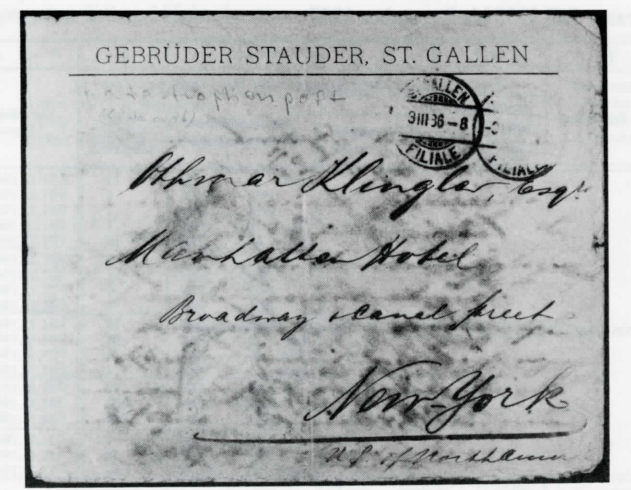 GEBRÜDER STAUDER, ST. GALLEN
Katastrophenpost
GALLEN
3 III 36 – 8
FILIALE
FILIALE
Othmar Klingler, Esqr.
Manhattan Hotel
Broadway & Canal street
New-York
U.S. of North Amer